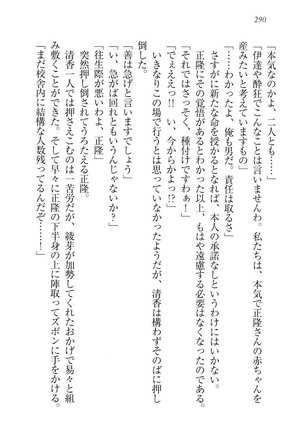 290
「本気なのかよ、二人とも……」
「伊達や酔狂でこんなことは言いませんわ。私たちは、本気で正隆さんの赤ちゃんを
産みたいと考えていますもの」
「……わかったよ、俺も男だ。責任は取るさ」
「それではさっそく、種付けですわぁ！」
さすがに新たな命を授かるとなれば、本人の承諾なしというわけにはいかない。
正隆にその覚悟があるとわかった以上、もはや遠慮する必要はなくなったのだ。
「でぇええっ!!　い、今からかよっ!?」
いきなりこの場で行うとは思っていなかったようだが、清香は構わずそのばに押し
倒した。
「善は急げと言いますでしょう」
「い、急がば回れともいうんじゃないか？」
「往生際が悪いわよ、正隆」
突然押し倒されてうろたえる正隆。
清香一人では押さえこむのは一苦労だが、綾芽が加勢してくれたおかげで易々と組
み敷くことができた。そして早々に正隆の下半身の上に陣取ってズボンに手をかける。
「まだ校舎に結構な人数残ってるんだぞ……！」